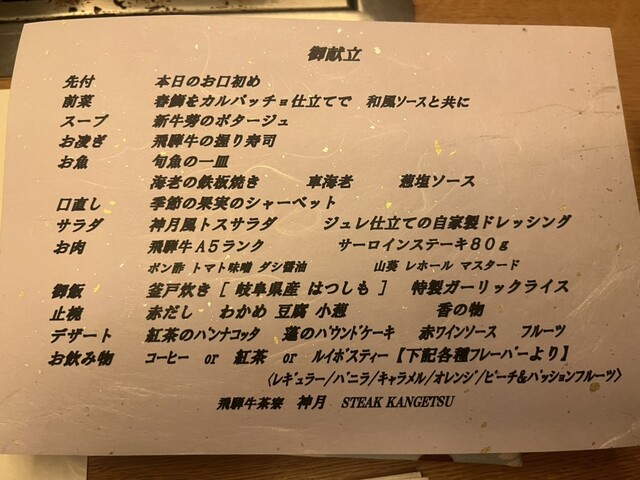 御献立
先付 本日のお口初め
前菜 春鯛をカルパッチョ仕立てで 和風ソースと共に
スープ 新牛蒡のポタージュ
お凌ぎ 飛騨牛の握り寿司
お魚 旬魚の一皿
海老の鉄板焼き 車海老 葱塩ソース
口直し 季節の果実のシャーベット
サラダ 神月風トスサラダ ジュレ仕立ての自家製ドレッシング
お肉 飛騨牛A5ランク サーロインステーキ80g
ポン酢 トマト味噌 ダシ醤油 山葵 レホール マスタード
御飯 釜戸炊き [ 岐阜県産 はつしも ] 特製ガーリックライス
止椀 赤だし わかめ 豆腐 小葱 香の物
デザート 紅茶のパンナコッタ 蓬のパウンドケーキ 赤ワインソース フルーツ
お飲み物 コーヒー or 紅茶 or ルイボスティー【下記各種フレーバーより】
〈レギュラー/バニラ/キャラメル/オレンジ/ピーチ&パッションフルーツ〉
飛騨牛茶寮 神月 STEAK KANGETSU